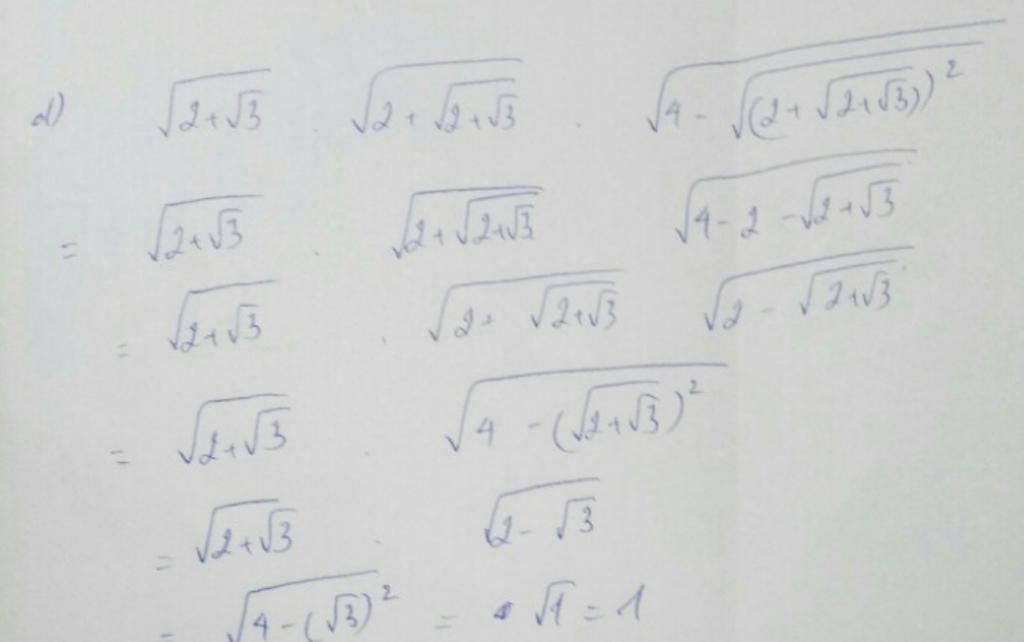 d) √(2+√3) . √(2+√(2+√3)) . √(4-√((2+√(2+√3))²))
= √(2+√3) . √(2+√(2+√3)) √(4-2-√(2+√3))
= √(2+√3) . √(2+√(2+√3)) √(2-√(2+√3))
= √(2+√3) . √(4-(√(2+√3))²)
= √(2+√3) . √(2-√3)
= √(4-(√3)²) = √1 = 1